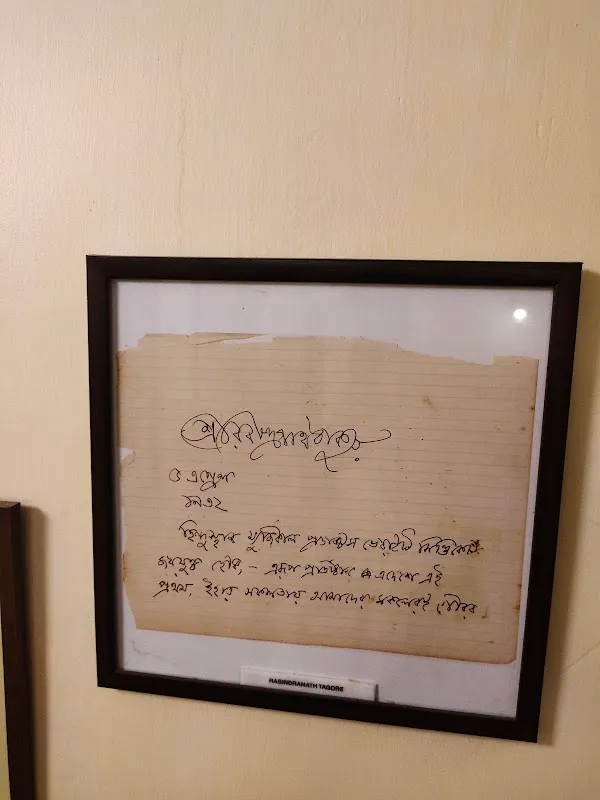 শ্রীরবীন্দ্রনাথ ঠাকুর
৫ এপ্রেল
১৯৩২
হিন্দুস্থান ম্যুজিকাল প্রডাক্টস ভেরাইটি সিণ্ডিকেট
জয়যুক্ত হৌক, - এরূপ প্রতিষ্ঠান এদেশে এই
প্রথম, ইহার সফলতায় আমাদের সকলেরই গৌরব
RABINDRANATH TAGORE